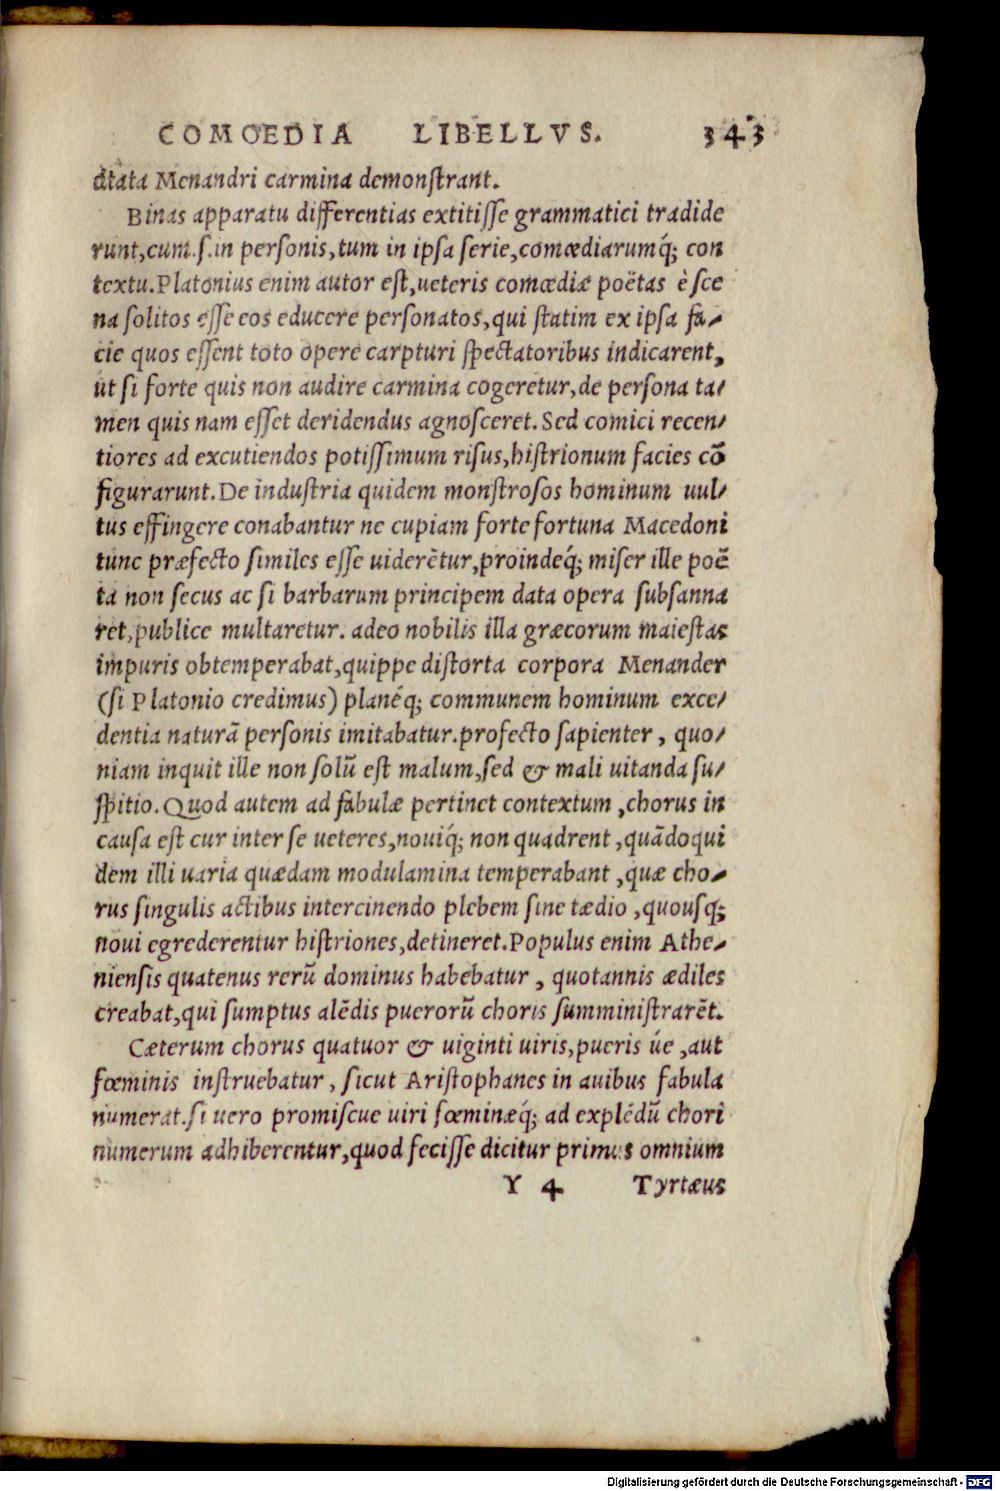 COMOEDIA LIBELLVS. 343
ctata Menandri carmina demonſtrant.
Binas apparatu differentias extitiſſe grammatici tradide
runt,cum.ſ.in perſonis,tum in ipſa ſerie,comœdiarumq́; con
textu.Platonius enim autor eſt,ueteris comœdiæ poëtas è ſce
na ſolitos eſſe eos educere perſonatos,qui ſtatim ex ipſa fa-
cie quos eſſent toto opere carpturi ſpectatoribus indicarent,
ut ſi forte quis non audire carmina cogeretur,de perſona ta-
men quis nam eſſet deridendus agnoſceret.Sed comici recen-
tiores ad excutiendos potiſſimum riſus,hiſtrionum facies cō
figurarunt.De induſtria quidem monſtroſos hominum uul-
tus effingere conabantur ne cupiam forte fortuna Macedoni
tunc præfecto ſimiles eſſe uiderētur,proindeq́; miſer ille poē
ta non ſecus ac ſi barbarum principem data opera ſubſanna
ret,publice multaretur. adeo nobilis illa græcorum maieſtas
impuris obtemperabat,quippe diſtorta corpora Menander
(ſi Platonio credimus) planéq; communem hominum exce-
dentia naturā perſonis imitabatur.profecto ſapienter, quo-
niam inquit ille non ſolū eſt malum,ſed & mali uitanda ſu-
ſpitio.Quod autem ad fabulæ pertinet contextum ,chorus in
cauſa eſt cur inter ſe ueteres,nouiq́; non quadrent ,quādoqui
dem illi uaria quædam modulamina temperabant ,quæ cho-
rus ſingulis actibus intercinendo plebem ſine tædio ,quouſq;
noui egrederentur hiſtriones,detineret.Populus enim Athe-
nienſis quatenus rerū dominus habebatur , quotannis ædiles
creabat,qui ſumptus alēdis puerorū choris ſumminiſtrarēt.
Cæterum chorus quatuor & uiginti uiris,pueris úe ,aut
fœminis inſtruebatur, ſicut Ariſtophanes in auibus fabula
numerat.ſi uero promiſcue uiri fœminæq́; ad explēdū chori
numerum adhiberentur,quod feciſſe dicitur primus omnium
Y 4 Tyrtæus
Digitalisierung gefördert durch die Deutsche Forschungsgemeinschaft - DFG